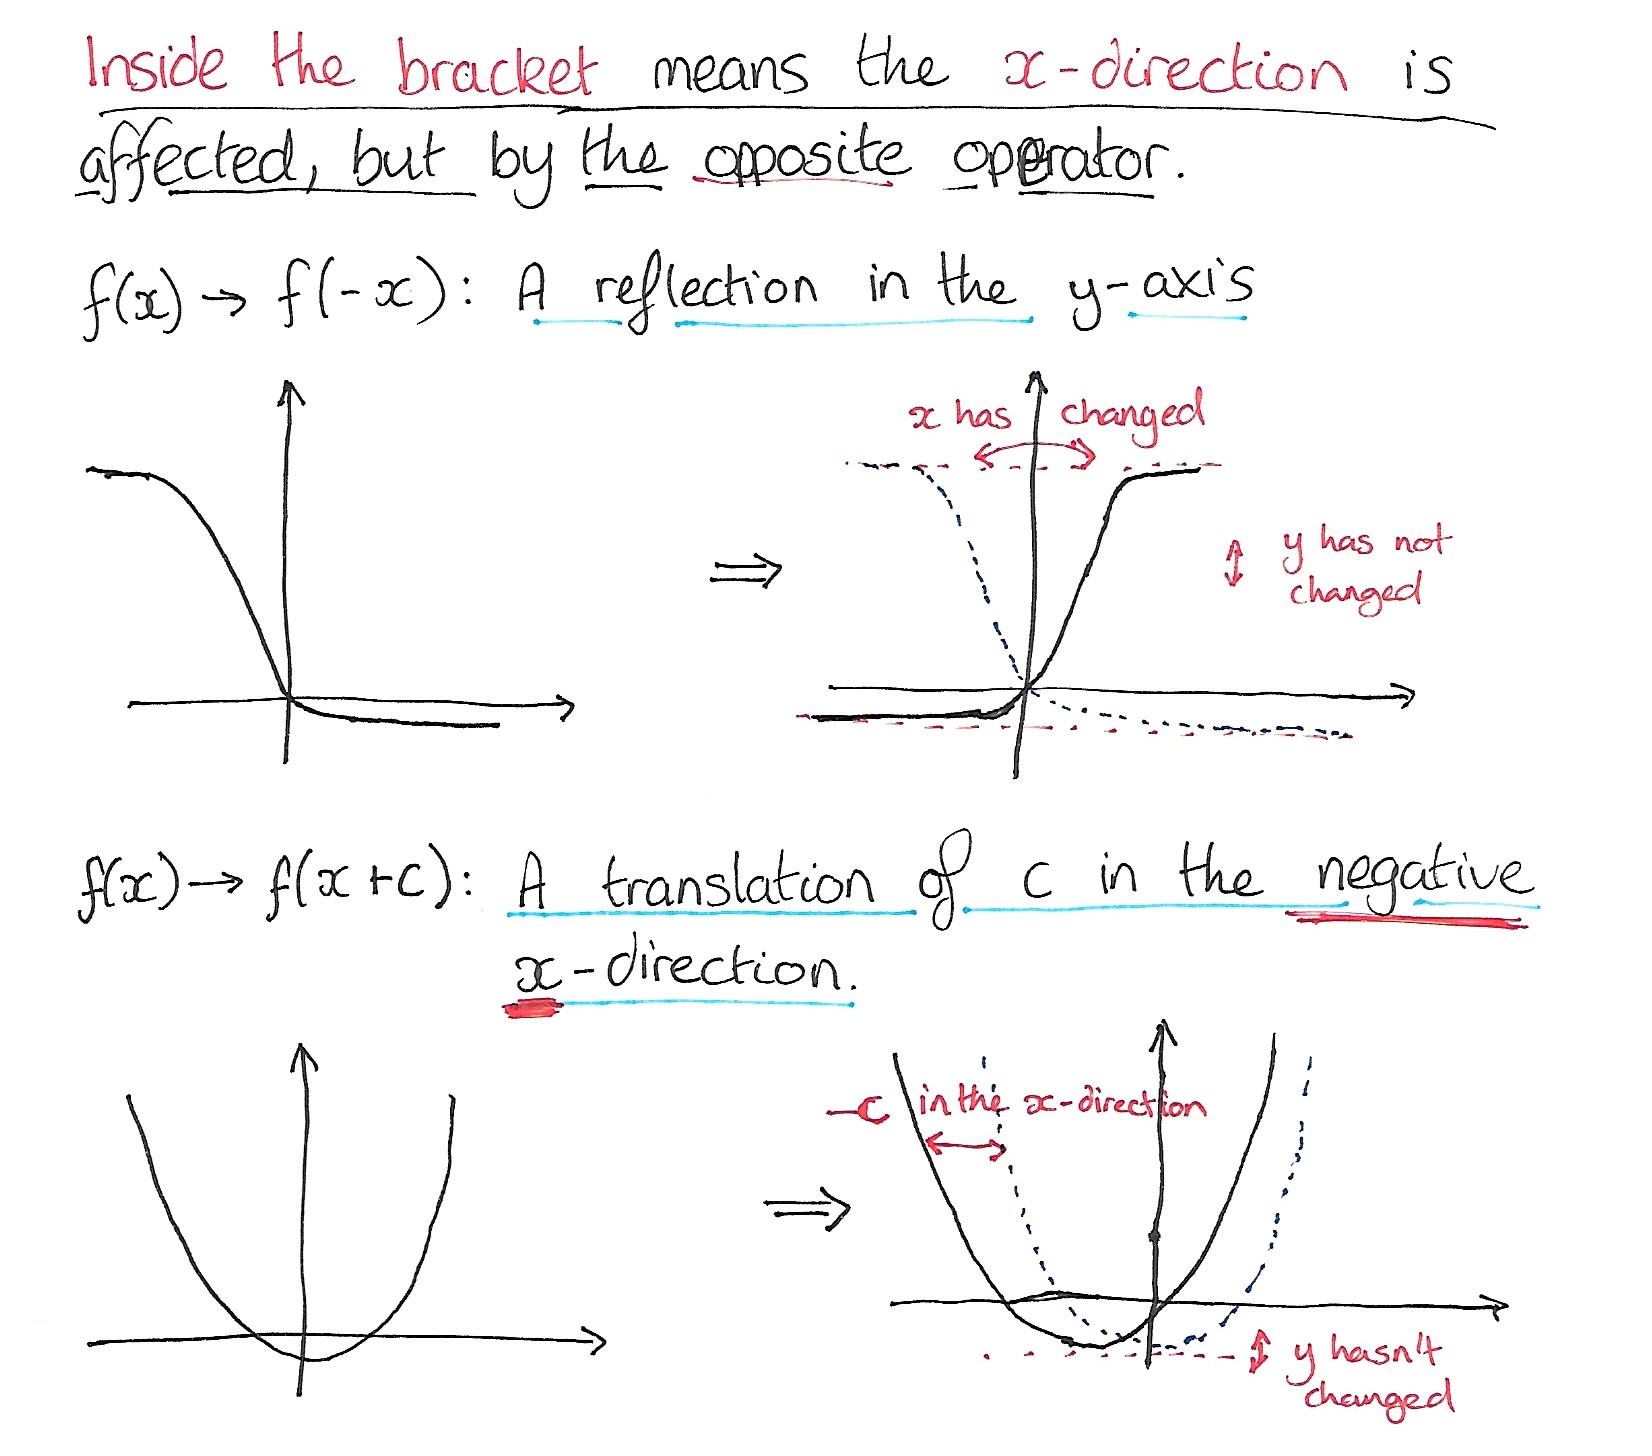 Inside the bracket means the x-direction is
affected, but by the opposite operator.
f(x) → f(-x): A reflection in the y-axis
x has changed
y has not
changed
⇒
f(x) → f(x+c): A translation of c in the negative
x-direction.
-c in the x-direction
⇒
y hasn't
changed